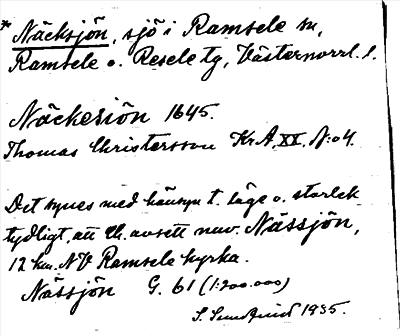 * Näcksjön, sjö i Ramsele sn,
Ramsele o. Resele tg, Västernorrl. l.
Näckesiön 1645.
Thomas Christersson Kr.A. XX. N:o 4.
Det synes med hänsyn t. läge o. storlek
tydligt, att Th. avsett nuv. Nässjön,
12 km. NV Ramsele kyrka.
Nässjön G. 61 (1:200.000)
S. Sundquist 1935.